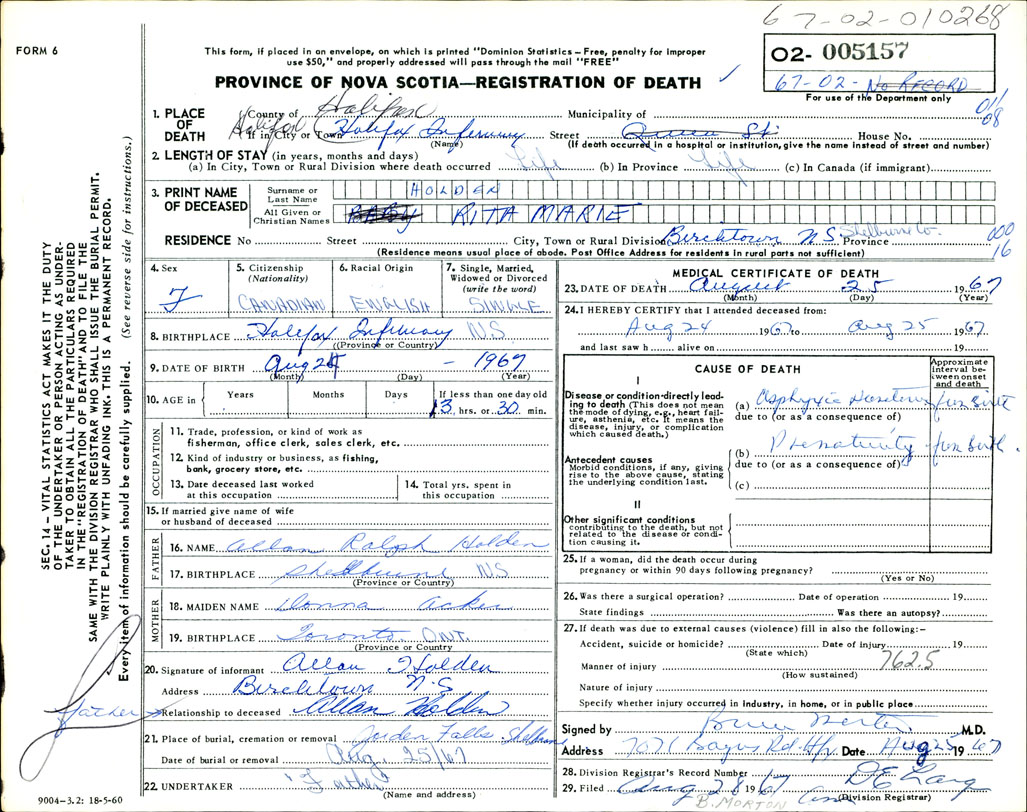 67-02-010268
FORM 6
This form, if placed in an envelope, on which is printed "Dominion Statistics – Free, penalty for improper
use $50," and properly addressed will pass through the mail "FREE"
02- 005157
67-02- No RECORD
For use of the Department only
PROVINCE OF NOVA SCOTIA—REGISTRATION OF DEATH ✓
SEC. 14 – VITAL STATISTICS ACT MAKES IT THE DUTY
OF THE UNDERTAKER OR PERSON ACTING AS UNDER-
TAKER TO OBTAIN ALL THE PARTICULARS REQUIRED
IN THE "REGISTRATION OF DEATH" AND TO FILE THE
SAME WITH THE DIVISION REGISTRAR WHO SHALL ISSUE THE BURIAL PERMIT.
WRITE PLAINLY WITH UNFADING INK. THIS IS A PERMANENT RECORD.
Every item of information should be carefully supplied. (See reverse side for instructions.)
1. PLACE OF DEATH
County of Halifax Municipality of
Halifax If in City or Town Halifax Infirmary Street Queen St. House No.
(Name) (If death occurred in a hospital or institution, give the name instead of street and number)
08
2. LENGTH OF STAY (in years, months and days)
(a) In City, Town or Rural Division where death occurred Life (b) In Province Life (c) In Canada (if immigrant)
3. PRINT NAME OF DECEASED
Surname or Last Name HOLDEN
All Given or Christian Names BABY RITA MARIE
RESIDENCE No Street City, Town or Rural Division Birchtown N.S. Shelburne Co. Province
000
16
(Residence means usual place of abode. Post Office Address for residents in rural parts not sufficient)
4. Sex F
5. Citizenship (Nationality) CANADIAN
6. Racial Origin ENGLISH
7. Single, Married, Widowed or Divorced (write the word) SINGLE
8. BIRTHPLACE Halifax Infirmary NS
(Province or Country)
9. DATE OF BIRTH Aug 24 – 1967
(Month) (Day) (Year)
10. AGE in Years Months Days If less than one day old
13 hrs. or 30 min.
OCCUPATION
11. Trade, profession, or kind of work as
fisherman, office clerk, sales clerk, etc.
12. Kind of industry or business, as fishing,
bank, grocery store, etc.
13. Date deceased last worked
at this occupation
14. Total yrs. spent in
this occupation
15. If married give name of wife
or husband of deceased
FATHER
16. NAME Allan Ralph Holden
17. BIRTHPLACE Shelburne NS
(Province or Country)
MOTHER
18. MAIDEN NAME Donna Acker
19. BIRTHPLACE Toronto ONT.
(Province or Country)
20. Signature of informant Allan Holden
Address Birchtown N.S
Father Relationship to deceased Allan Holden
21. Place of burial, cremation or removal Jorden Falls Shelburne
Date of burial or removal Aug. 25/67
22. UNDERTAKER "Father"
(Name and address)
9004-3.2: 18-5-60
MEDICAL CERTIFICATE OF DEATH
23. DATE OF DEATH August 25 1967
(Month) (Day) (Year)
24. I HEREBY CERTIFY that I attended deceased from:
Aug 24 1967 to Aug 25 1967
and last saw h alive on 19
CAUSE OF DEATH
Approximate interval between onset and death
I
Disease or condition directly leading to death (This does not mean the mode of dying, e.g., heart failure, asthenia, etc. It means the disease, injury, or complication which caused death.)
(a) Asphyxia from Birth
due to (or as a consequence of)
Antecedent causes
Morbid conditions, if any, giving rise to the above cause, stating the underlying condition last.
(b) Prematurity from birth.
due to (or as a consequence of)
(c)
II
Other significant conditions
contributing to the death, but not related to the disease or condition causing it.
25. If a woman, did the death occur during
pregnancy or within 90 days following pregnancy?
(Yes or No)
26. Was there a surgical operation? Date of operation 19
State findings Was there an autopsy?
27. If death was due to external causes (violence) fill in also the following:–
Accident, suicide or homicide? Date of injury 19
(State which)
762.5
Manner of injury
(How sustained)
Nature of injury
Specify whether injury occurred in industry, in home, or in public place
Signed by M.D.
Address Date Aug 25 1967
28. Division Registrar's Record Number
29. Filed Aug 28 1967
(Division Registrar)
B. MORTON